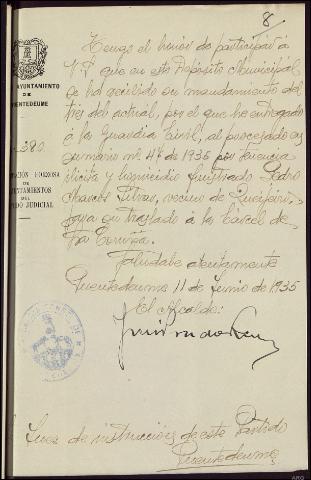 8
Tengo el honor de participar á
V.S. que en este Depósito Municipal
se ha recibido su mandamiento del
tres del actual, por el que he entregado
á la Guardia Civil, al procesado en
sumario nº 47 de 1935 por tenencia
ilícita y homicidio frustrado Pedro
vecino de
para su traslado á la Carcel de
La Coruña.
Salúdale atentamente
Puentedeume 11 de Junio de 1935
El Alcalde:
AYUNTAMIENTO
DE
PUENTEDEUME
380
AYUNTAMIENTOS
JUDICIAL
Juez de instrucción de este Partido
Puentedeume